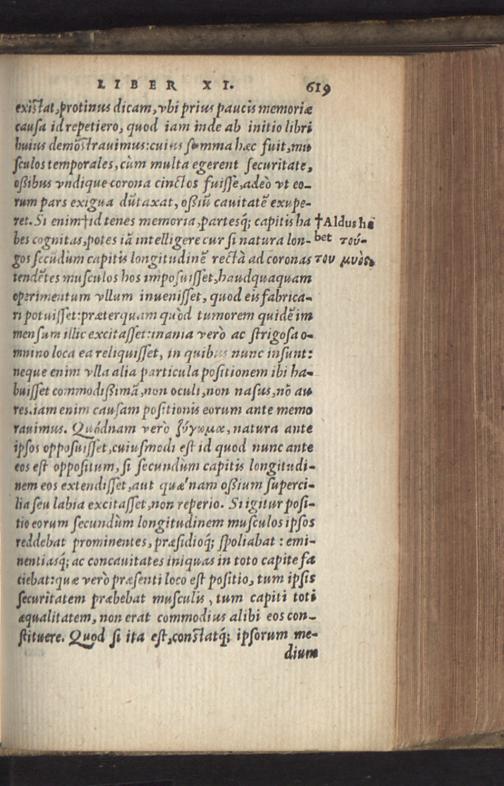 LIBER XI. 619
existat, protinus dicam, vbi prius paucis memoriæ
causa id repetiero, quod iam inde ab initio libri
huius demõstrauimus: cuius summa hæc fuit, mu
sculos temporales, cùm multa egerent securitate,
oßibus vndique corona cinctos fuisse, adeò vt eo-
rum pars exigua dũtaxat, oßiũ cauitatẽ exupe-
ret. Si enim†id tenes memoria, partesq́; capitis ha
bes cognitas, potes iã intelligere cur si natura lon-
gos secũdum capitis longitudinẽ rectà ad coronas
tendẽtes musculos hos imposuisset, haudquaquam
operimentum vllum inuenisset, quod eis fabrica-
ri potuisset: præterquam quòd tumorem quidẽ im
mensum illic excitasset: inania verò ac strigosa o-
mnino loca ea reliquisset, in quibus nunc insunt:
neque enim vlla alia particula positionem ibi ha-
buisset commodißimã, non oculi, non nasus, nõ au
res. iam enim causam positionis eorum ante memo
rauimus. Quódnam verò ζύγωμα, natura ante
ipsos opposuisset, cuiusmodi est id quod nunc ante
eos est oppositum, si secundùm capitis longitudi-
nem eos extendisset, aut quæ nam oßium superci-
lia seu labia excitasset, non reperio. Si igitur posi-
tio eorum secundùm longitudinem musculos ipsos
reddebat prominentes, præsidioq́; spoliabat: emi-
nentiasq́; ac concauitates iniquas in toto capite fa
ciebat: quæ verò præsenti loco est positio, tum ipsis
securitatem præbebat musculis, tum capiti toti
æqualitatem, non erat commodius alibi eos con-
stituere. Quod si ita est, constatq́; ipsorum me-
dium
†Aldus ha
bet τού-
του μυὸς.